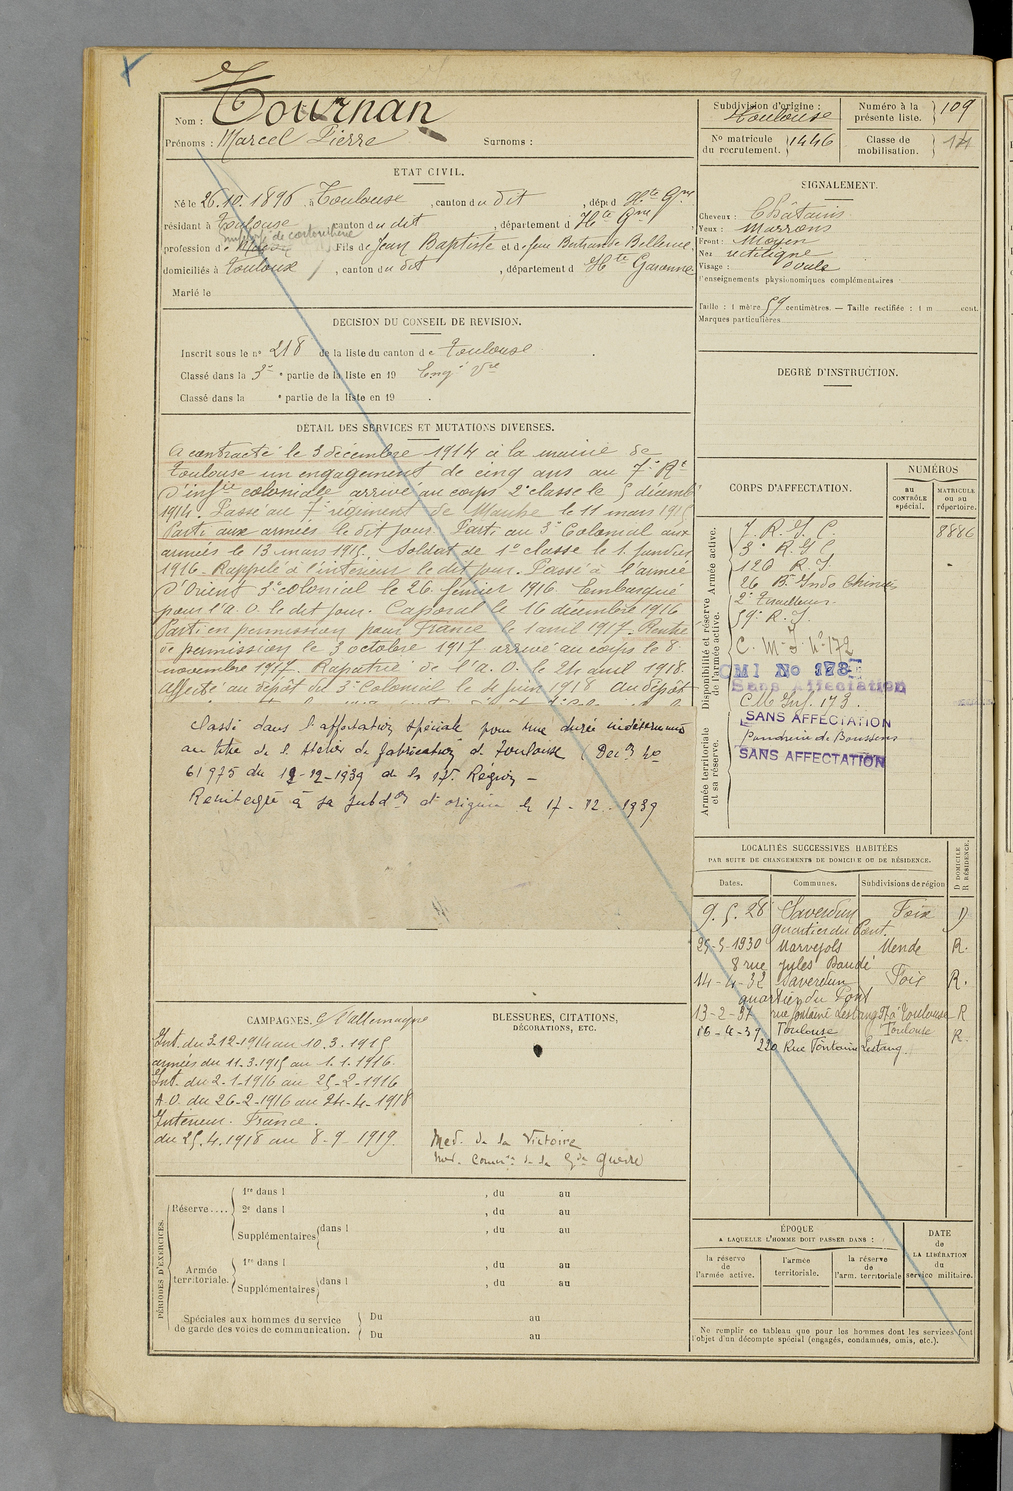 Nom : Tournan
Prénoms : Marcel Pierre Surnoms :
Subdivision d'origine : Toulouse
Numéro à la présente liste. 109
No matricule du recrutement. 1446
Classe de mobilisation. 14
ETAT CIVIL.
Né le 26.10.1896, à Toulouse, canton du dit, dép. d Hte Gne
résidant à Toulouse, canton du dit, département d Hte Gne,
profession de Fils de Jean Baptiste et de
domiciliés à Toulouse, canton du dit, département d Hte Garonne
Marié le
SIGNALEMENT.
Cheveux : Châtains
Yeux : Marrons
Front : Moyen
Nez rectiligne
Visage : ovale
Renseignements physionomiques complémentaires
Taille : 1 mètre 59 centimètres. — Taille rectifiée : 1 m cent.
Marques particulières
DECISION DU CONSEIL DE REVISION.
Inscrit sous le no 218 de la liste du canton de Toulouse
Classé dans la 3e partie de la liste en 19 Engé Vre
Classé dans la e partie de la liste en 19 .
DEGRÉ D'INSTRUCTION.
DÉTAIL DES SERVICES ET MUTATIONS DIVERSES.
A contracté le 3 décembre 1914 à la mairie de
Toulouse un engagement de cinq ans au 7e Rt
d'infie coloniale arrivé au corps 2e classe le 5 décemb
1914. Passé au 7 régiment de Marche le 11 mars 1915
Parti aux armées le dit jour. Parti au 3e Colonial aux
armées le 13 mars 1915. Soldat de 1e classe le 1. janvier
1916. Rappelé à l'intérieur le dit jour. Passé à l'armée
d'Orient 3e colonial le 26 février 1916. Embarqué
pour l'a. O. le dit jour. Caporal le 16 décembre 1916
Parti en permission pour France le 1 avril 1917. Rentré
de permission le 3 octobre 1917 arrivé au corps le 8
novembre 1917. Rapatrié de l'a. O. le 24 avril 1918.
Affecté au dépôt du 3e Colonial le 4 juin 1918 au dépôt
Classé dans l'affectation spéciale pour une durée indéterminée
au titre de l'Atelier de fabrication de Toulouse (Décon no
61975 du 12-12-1939 de la 17e Région –
Réintégré à sa subdon d'origine le 17-12-1939
CORPS D'AFFECTATION.
NUMÉROS
au CONTRÔLE spécial.
MATRICULE ou au répertoire.
Disponibilité et réserve de l'armée active. Armée active.
Armée territoriale et sa réserve.
7. R. I. C. 8886
3e R. I. C
120 R. I.
26 Bn Indo Chinois
2e Tirailleurs
59e R. I.
C. M. I No 172
CMI No 173
Sans Affectation
CM Inf. 173.
SANS AFFECTATION
Poudrerie de Boussens
SANS AFFECTATION
LOCALITÉS SUCCESSIVES HABITÉES
PAR SUITE DE CHANGEMENTS DE DOMICILE OU DE RÉSIDENCE.
Dates. Communes. Subdivisions de région D DOMICILE R RÉSIDENCE.
9.5.28 Saverdun Foix D
quartier du Pont
25-5-1930 Marvejols Mende R.
8 rue Jules Daudé
14-4-32 Saverdun Foix R.
quartier du Pont
13-2-37 rue fontaine Lestang 57 à Toulouse R
16-4-37 Toulouse Toulouse R.
220 Rue Fontaine Lestang
CAMPAGNES. C. l'Allemagne
Int. du 3.12-1914 au 10.3.1915
armées du 11.3.1915 au 1.1.1916.
Int. du 2-1-1916 au 25-2-1916
A.O. du 26-2-1916 au 24-4-1918
Intérieur. France.
du 25.4.1918 au 8-9-1919.
BLESSURES, CITATIONS,
DÉCORATIONS, ETC.
Med. de la Victoire
Med. Commve de la Gde Guerre
PÉRIODES D'EXERCICES.
Réserve....
1re dans l , du au
2e dans l , du au
Supplémentaires dans l , du au
Armée territoriale.
1re dans l , du au
Supplémentaires dans l , du au
Spéciales aux hommes du service de garde des voies de communication.
Du au
Du au
ÉPOQUE
A LAQUELLE L'HOMME DOIT PASSER DANS :
la réserve de l'armée active.
l'armée territoriale.
la réserve de l'arm. territoriale
DATE de LA LIBÉRATION du service militaire.
Ne remplir ce tableau que pour les hommes dont les services font
l'objet d'un décompte spécial (engagés, condamnés, omis, etc.).